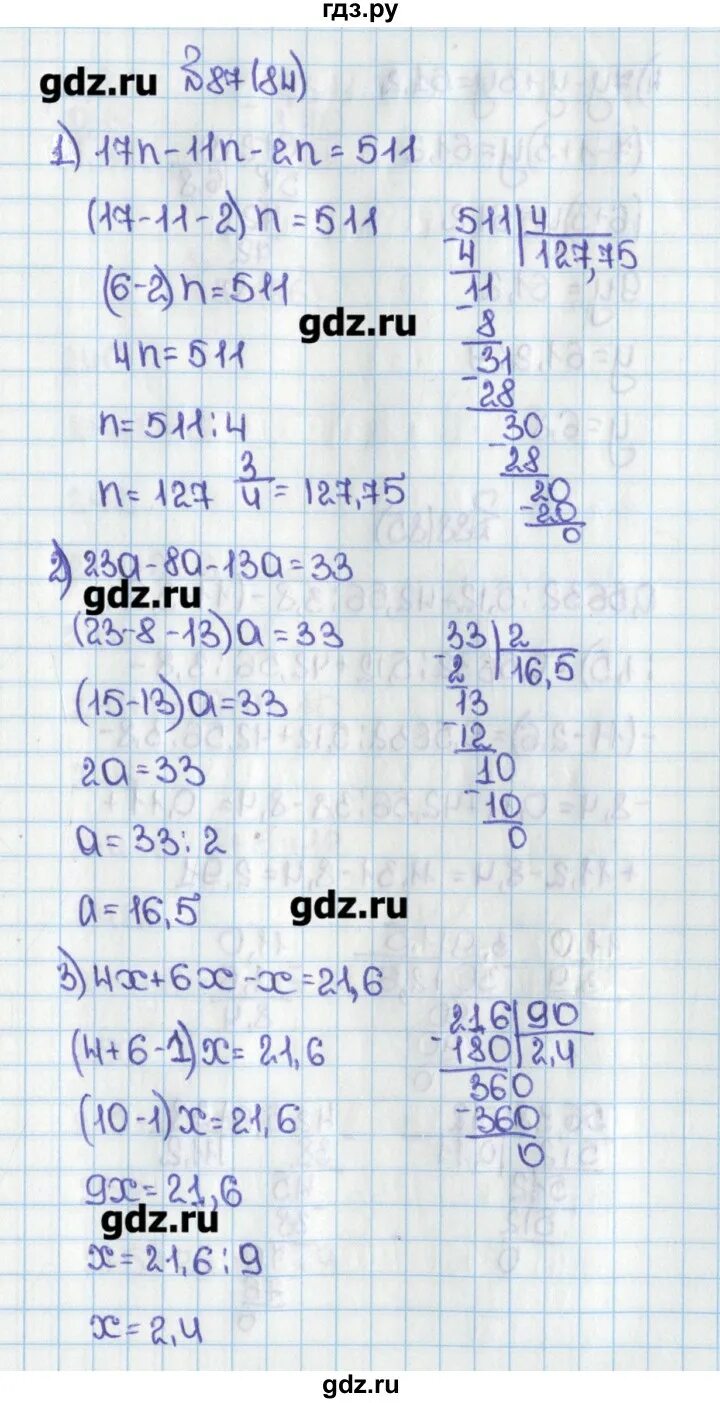 гдз.ру
gdz.ru №87(84)
1) 17n-11n-2n=511
(17-11-2)n=511
(6-2)n=511
gdz.ru
4n=511
n=511:4
n=127 3/4=127,75
511|4
-4 |127,75
11
-8
31
-28
30
-28
20
-20
0
2) 23a-8a-13a=33
gdz.ru
(23-8-13)a=33
(15-13)a=33
2a=33
a=33:2
a=16,5
33|2
-2 |16,5
13
-12
10
-10
0
gdz.ru
3) 4x+6x-x=21,6
(4+6-1)x=21,6
(10-1)x=21,6
9x=21,6
gdz.ru
x=21,6:9
x=2,4
216|90
-180|2,4
360
-360
0
gdz.ru